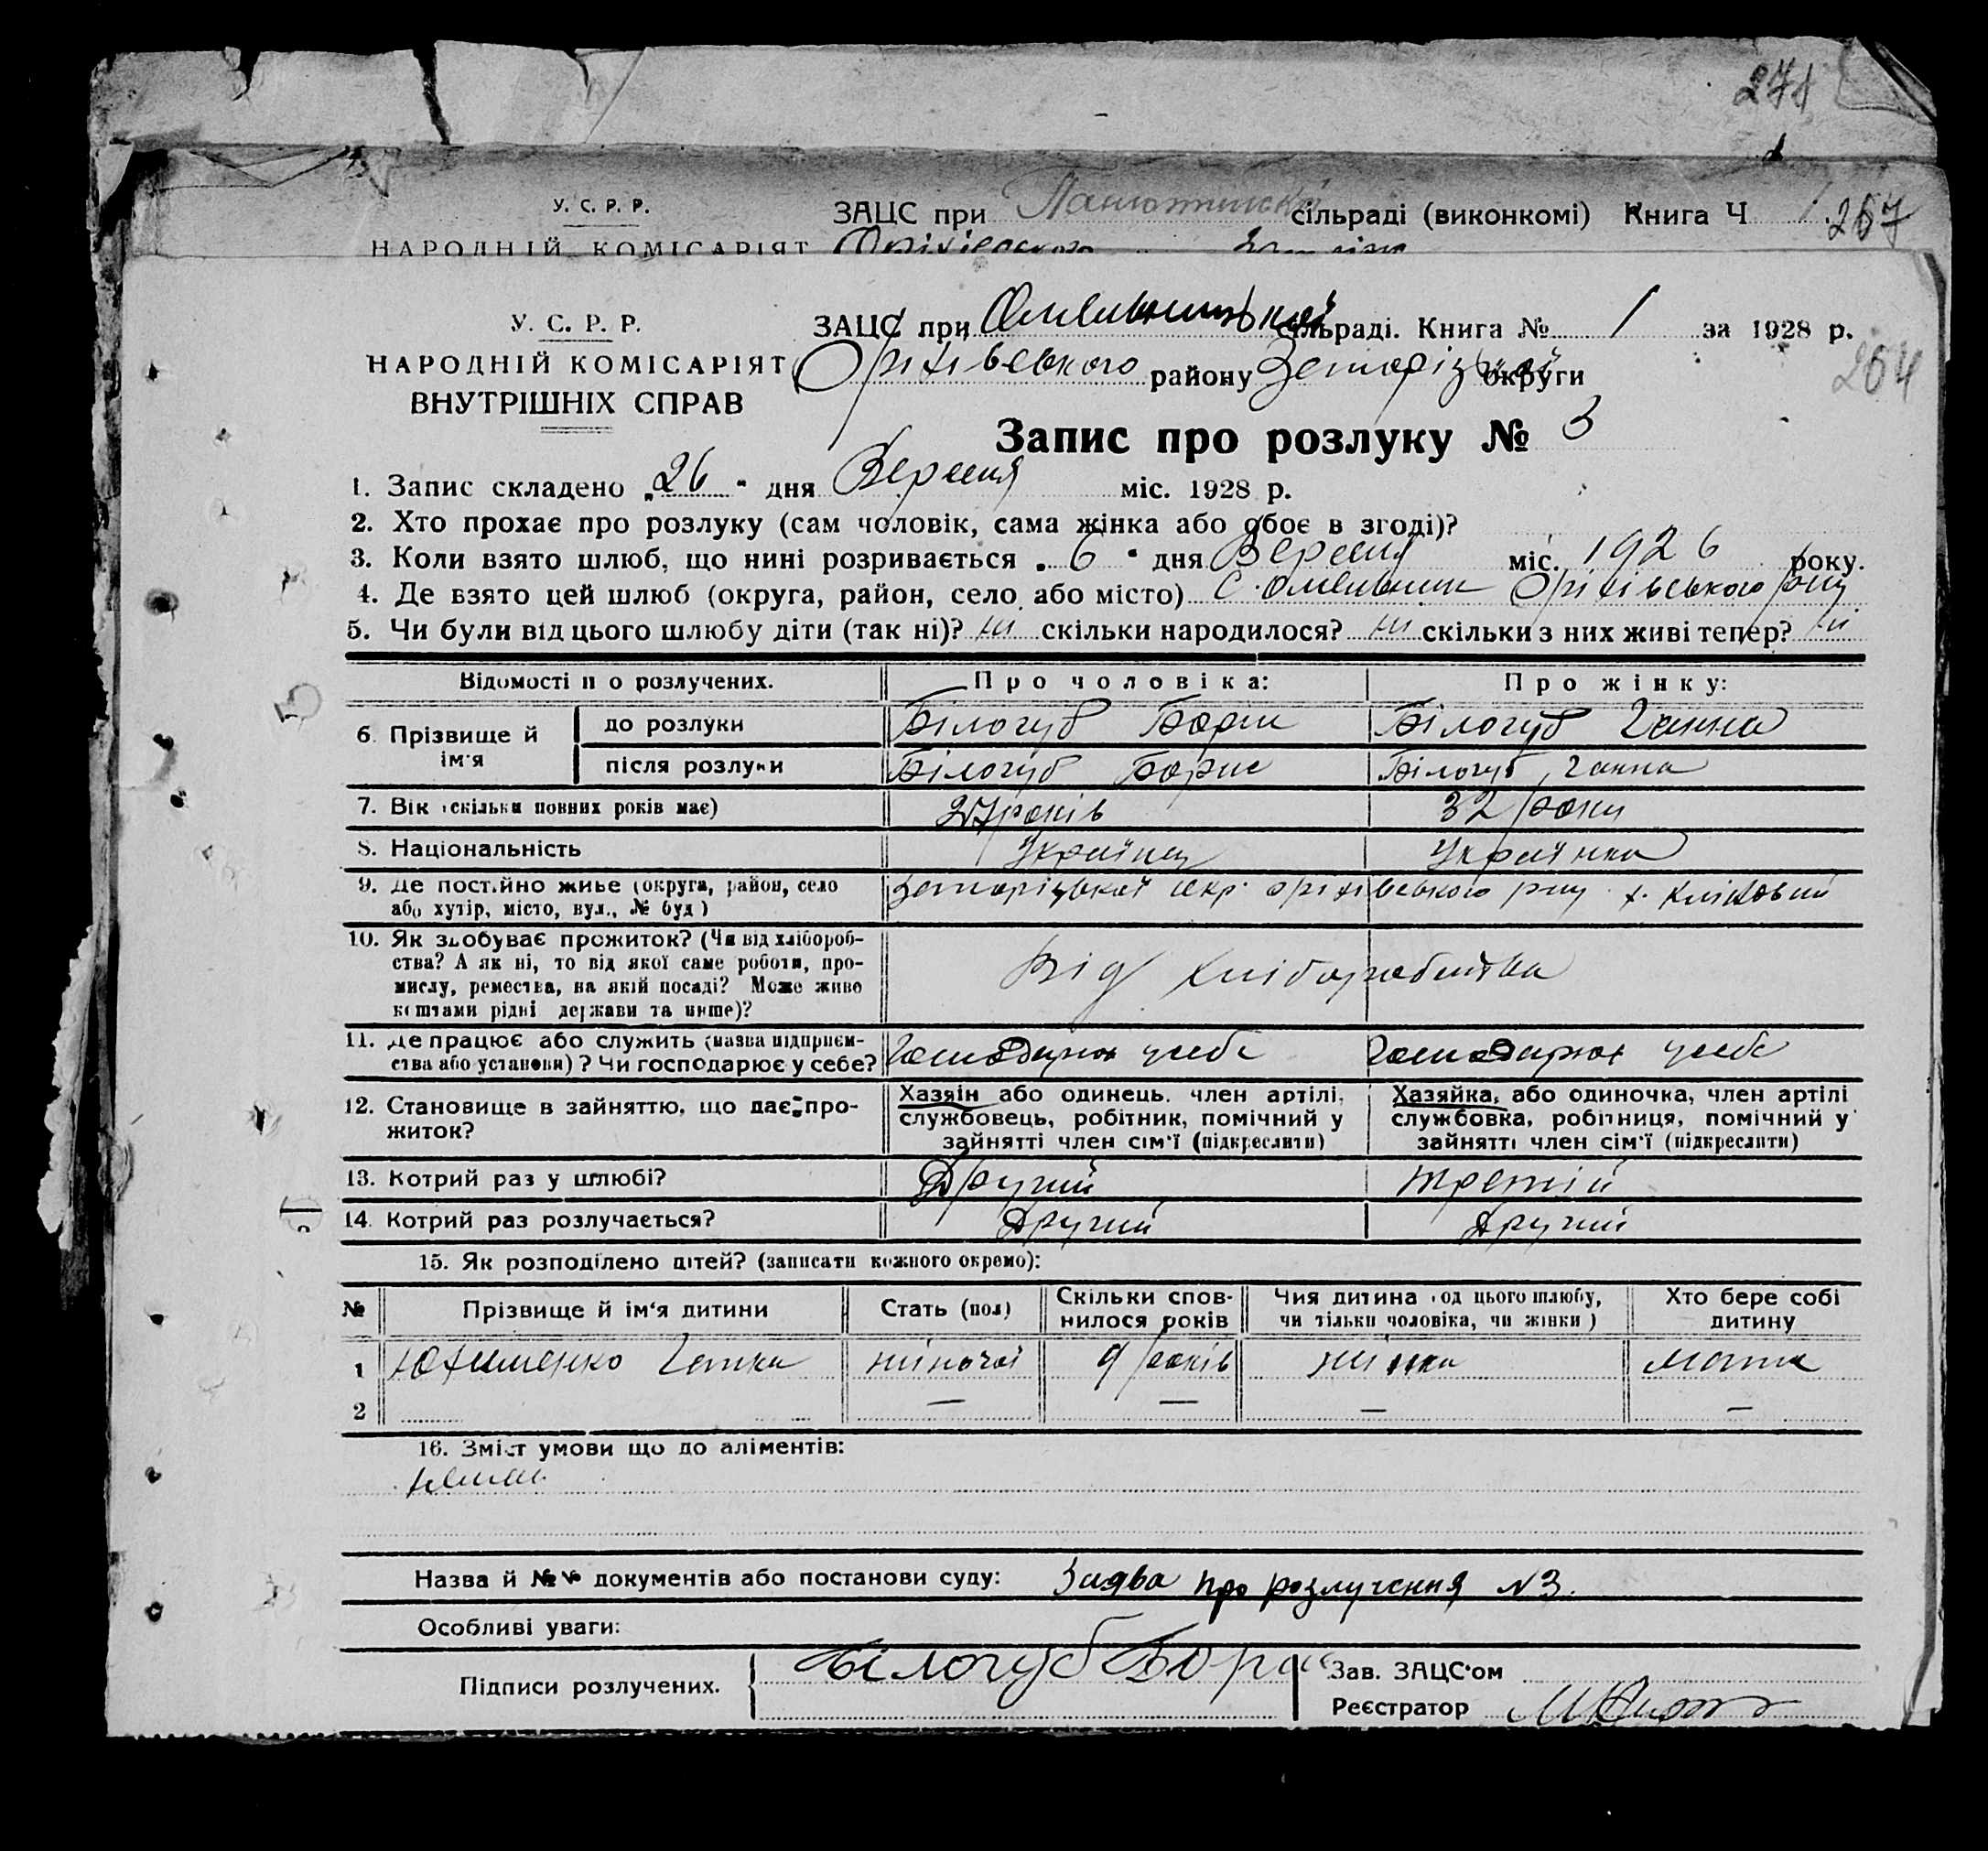 271
У. С. Р. Р. ЗАЦС при сільраді (виконкомі) Книга Ч 1. 267
НАРОДНІЙ КОМІСАРІЯТ Оріхівського
У. С. Р. Р. ЗАЦС при Омельницький сільраді. Книга № 1 за 1928 р.
НАРОДНІЙ КОМІСАРІЯТ Оріхівського району Запорізької округи 264
ВНУТРІШНІХ СПРАВ
Запис про розлуку № 3
1. Запис складено „26" дня Вересня міс. 1928 р.
2. Хто прохає про розлуку (сам чоловік, сама жінка або обоє в згоді)?
3. Коли взято шлюб, що нині розривається „6" дня Вересня міс. 1926 року.
4. Де взято цей шлюб (округа, район, село або місто) с. Омельник Оріхівського р-ну
5. Чи були від цього шлюбу діти (так ні)? ні скільки народилося? ні скільки з них живі тепер? ні
Відомості п о розлучених. Про чоловіка: Про жінку:
6. Прізвище й ім'я до розлуки Білогуб Борис Білогуб Ганна
після розлуки Білогуб Борис Білогуб Ганна
7. Вік (скільки повних років має) 27 років 32 роки
8. Національність Українец Українка
9. Де постійно живе (округа, район, село Запорізької окр. Оріхівського р-ну х.
або хутір, місто, вул., № буд)
10. Як здобуває прожиток? (Чи від хлібороб-
ства? А як ні, то від якої саме роботи, про- Від хліборобства
мислу, ремества, на якій посаді? Може живе
коштами рідні держави та инше)?
11. Де працює або служить (назва підприєм- Господарює у себе Господарює у себе
ства або установи)? Чи господарює у себе?
12. Становище в зайняттю, що дає про- Хазяїн або одинець, член артілі, Хазяйка, або одиночка, член артілі
житок? службовець, робітник, помічний у службовка, робітниця, помічний у
зайнятті член сім'ї (підкреслити) зайнятті член сім'ї (підкреслити)
13. Котрий раз у шлюбі? Другий третій
14. Котрий раз розлучається? Другий Другий
15. Як розподілено дітей? (записати кожного окремо):
№ Прізвище й ім'я дитини Стать (пол) Скільки спов- Чия дитина (од цього шлюбу, Хто бере собі
нилося років чи тільки чоловіка, чи жінки) дитину
1 Юхименко Ганна жіночої 9 років жінки мати
2 — — — —
16. Зміст умови що до аліментів:
Назва й №№ документів або постанови суду: Заява про розлучення №3.
Особливі уваги:
Підписи розлучених. Білогуб Борис Зав. ЗАЦС'ом
Реєстратор